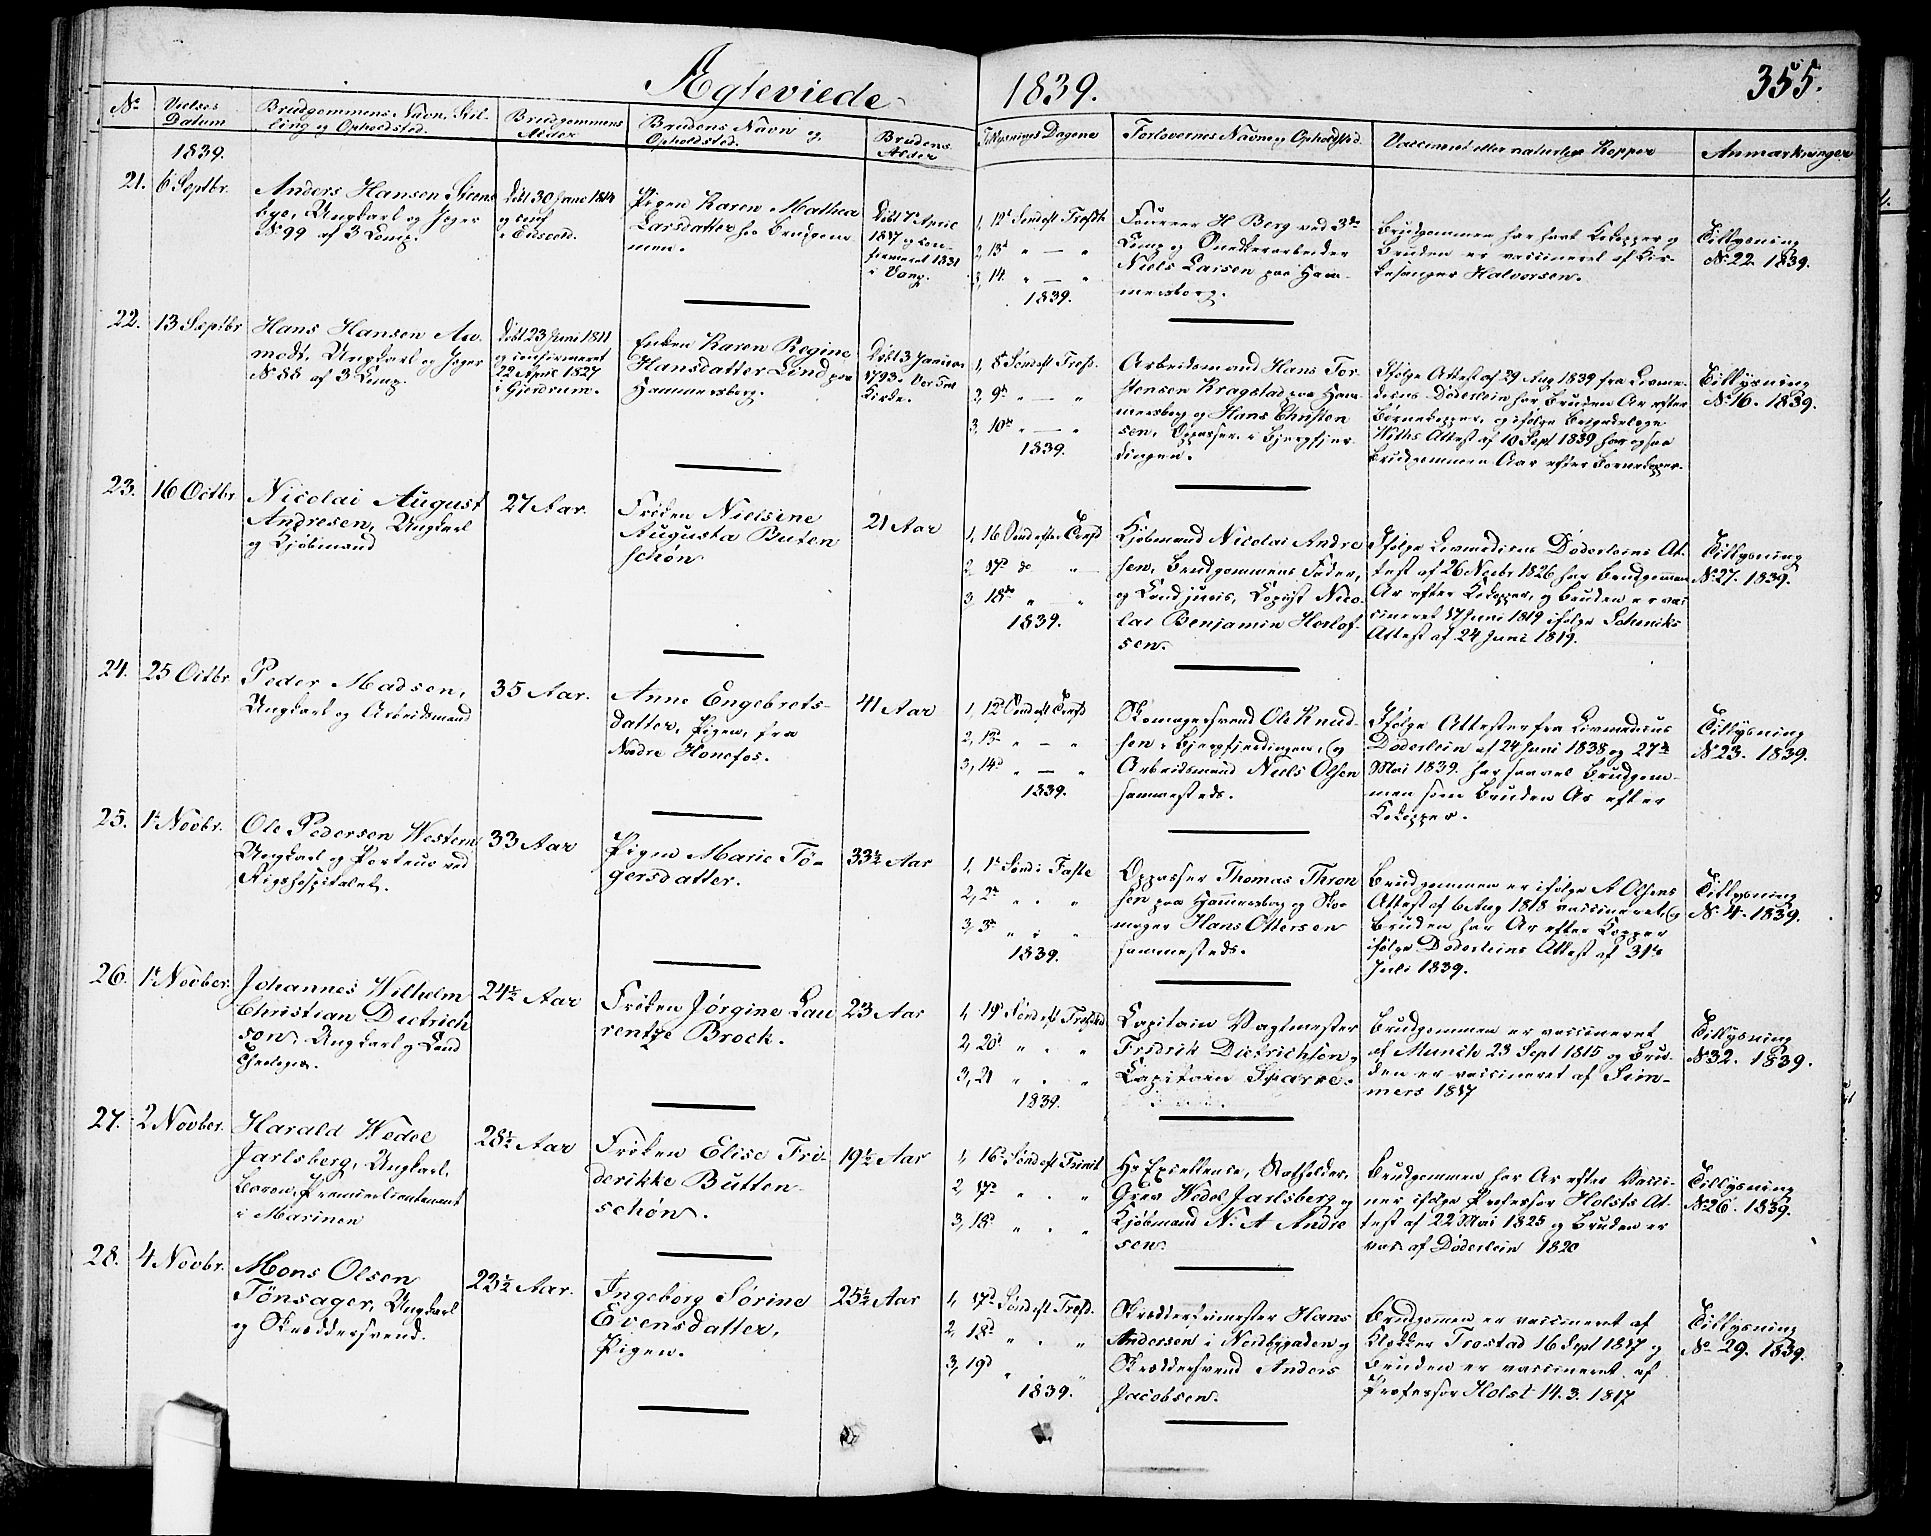 Ægteviede 1839. 355.
No Vielses Datum
Brudgommens Navn, Stilling og Opholdsted.
Brudgommens Alder
Brudens Navn og Opholdsted.
Brudens Alder
Tillysnings Dagene
Forlovernes Navne og Opholdsted
Vaccineret eller naturlige Kopper
Anmærkninger
1839.
21. 6 Septbr.
Anders Hansen
bye, Ungkarl og Jæger
No 99 af 3 Comp.
født 30 Jan 1814
og conf
i Eidsvold.
Pigen Karen Mathea
Larsdatter fra Brudgom
men.
født 7 April
1817 og con-
firmeret 1831
i Vang.
1, 12t Sønd eft Trefdh
2, 13d " — "
3, 14. " — "
1839.
Fourer H Berg ved 3die
Comp og Snedkerarbeider
Niels Larsen paa Ham-
mersborg.
Brudgommen har havt Kokopper og
Bruden er vaccineret af Kir-
kesanger Halvorsen.
Tillysning
No 22. 1839.
22. 13 Septbr
Hans Hansen Au-
modt, Ungkarl og Jæger
No 88 af 3 Comp.
født 23 Juni 1811
og confirmeret
22 April 1827
i Gjerdrum.
Enken Karen Regine
Hansdatter Lind paa
Hammersborg.
født 3 Januar
1793 i Vor Frel
Kirke.
1, 8d Søndeft Tref.
2, 9d " — "
3, 10de " — "
1839.
Arbeidsmand Hans Tor-
stensen Kragstad paa Ham-
mersborg og Hans Christen
sen, Oppasser i Bjergfjer-
dingen.
Ifølge Attest af 29 Aug 1839 fra Livme-
dicus Døderlein har Bruden Ar efter
Børnekopper, og ifølge Brigadelæge
Withs Attest af 10 Sept 1839 har ogsaa
Brudgommen Aar efter Børnekopper.
Tillysning
No 16. 1839.
23. 16 Octbr
Nicolai August
Andresen, Ungkarl
og Kjøbmand
27 Aar.
Frøken Nielsine
Augusta Buten
schøn
21 Aar
1, 16 Sønd efter Trefd
2, 17d do "
3, 18de " "
1839.
Kjøbmand Nicolai Andre
sen, Brudgommens Fader,
og Cand juris, Copist Nico-
lai Benjamin Herlof-
sen.
Ifølge Livmedicus Døderleins At-
test af 26 Novbr 1826 har Brudgommen
Ar efter Kokopper, og Bruden er vac
cineret 17 Juni 1819 ifølge Schencks
Attest af 24 Juni 1819.
Tillysning
No 27. 1839.
24. 25 Octbr
Peder Madsen,
Ungkarl og Arbeidsmand
35 Aar.
Anne Engebrets-
datter, Pigen, fra
Nordre Hønefos.
41 Aar
1, 12d Sønd eft Trefd
2, 13d " — "
3, 14d " — "
1839.
Skomagersvend Ole Knud-
sen i Bjergfjerdingen, og
Arbeidsmand Niels Olsen
sammesteds.
Ifølge Attester fra Livmedicus
Døderlein af 24 Juni 1838 og 27de
Mai 1839 har saavel Brudgom-
men som Bruden Ar efter
Kokopper.
Tillysning
No 23. 1839.
25. 1te Novbr.
Ole Pedersen Westem
Ungkarl og Porteur ved
Rigshospitalet.
33 Aar
Pigen Marie Tø-
gersdatter.
33½ Aar
1, 1te Sønd i Faste
2, 2den " . "
3, 3die " " "
1839.
Oppasser Thomas Thron
sen paa Hammersborg og Sko-
mager Hans Ottersen
sammesteds.
Brudgommen er ifølge A Olsens
Attest af 6 Aug 1818 vaccineret, og
Bruden har Ar efter Kopper
ifølge Døderleins Attest af 31te
Juli 1839.
Tillysning
No 4. 1839.
26. 1te Novber.
Johannes Wilhelm
Christian Dietrich
son, Ungkarl og Cand
Theologiæ.
24½ Aar
Frøken Jørgine Lau
rentze Brock.
23 Aar
1, 19d Sønd eft Trefold
2, 20d " . "
3, 21 " . "
1839.
Capitain Vagtmester
Fredrik Dietrichson,
Capitain Sparre.
Brudgommen er vaccineret
af Munch 23 Sept 1815 og Bru-
den er vaccineret af Sim-
mers 1817
Tillysning
No 32. 1839.
27. 2 Novber.
Harald Wedel
Jarlsberg, Ungkarl,
Baron, Premierlieutenant
i Marinen
28½ Aar
Frøken Elise Fri-
derikke Butten-
schøn.
19½ Aar
1, 16d Sønd eft Trinit
2, 17d " . "
3, 18d " . "
Hs Excellence, Statholder,
Grev Wedel Jarlsberg og
Kjøbmand N: A Andre
sen.
Brudgommen har Ar efter Vacci-
ner ifølge Professor Holsts At-
test af 22 Mai 1825 og Bruden er
vac. af Døderlein 1820
Tillysning
No 26. 1839.
28. 4 Novbr.
Mons Olsen
Tønsager, Ungkarl
og Skræddersvend.
23½ Aar.
Ingeborg Sørine
Evensdatter,
Pigen.
25½ Aar
1, 17d Sønd eft Trefd.
2, 18d " . "
3, 19d " . "
1839.
Skræddermester Hans
Andersen i Nordbygaden og
Skræddersvend Anders
Jacobsen.
Brudgommen er vaccineret af
Klokker Trostad 16 Sept 1817 og
Bruden er vaccineret af
Professor Holst 14.3.1817
Tillysning
No 29. 1839.